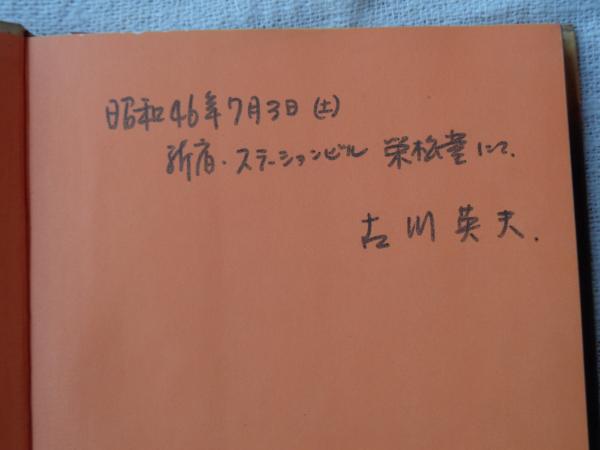 昭和46年7月3日(土)
新宿・ステーションビル 栄松堂にて.
古川英夫.